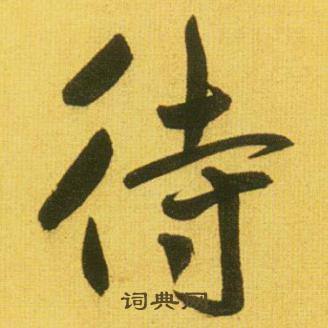 待
词典网